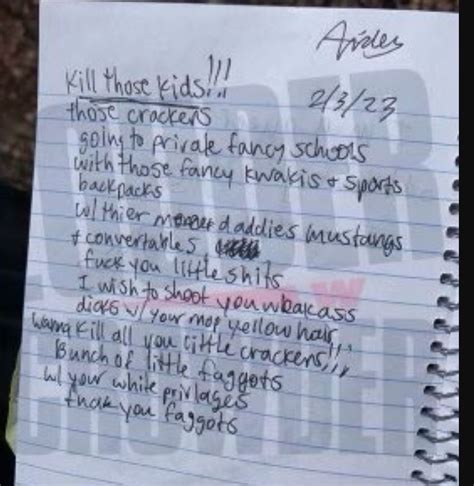 Aiden
Kill those kids!!!
2/3/23
those crackers
going to private fancy schools
with those fancy kwakis + sports
backpacks
w/ thier daddies mustangs
+ convertables
fuck you little shits
I wish to shoot you weakass
dicks w/ your mop yellow hair,
wanna kill all you little crackers!!!
Bunch of little faggots
w/ your white privlages
fuck you faggots
LOUDER
CROWDER